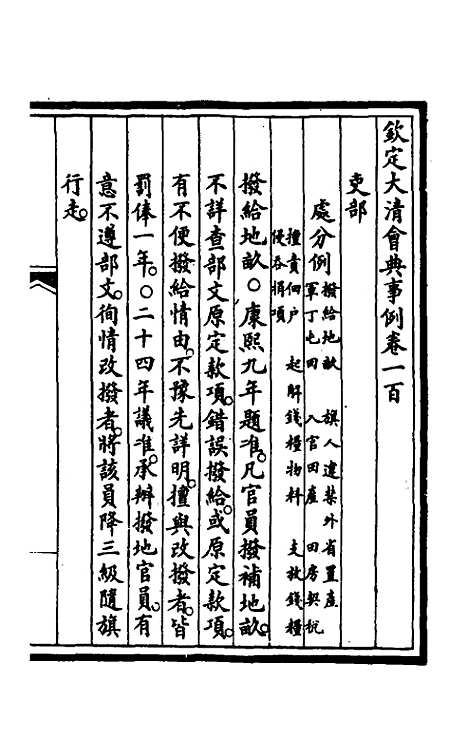 欽定大清會典事例卷一百
吏部
處分例 撥給地畝 旗人違禁外省置產
軍丁屯田 入官田產 田房契稅
擅責佃戶 起解錢糧物料 支放錢糧
侵吞捐項
撥給地畝○康熙九年題准。凡官員撥補地畝。
不詳查部文原定款項。錯誤撥給。或原定款項。
有不便撥給情由。不豫先詳明。擅與改撥者。皆
罰俸一年。○二十四年議准。承辦撥地官員。有
意不遵部文。徇情改撥者。將該員降三級隨旗
行走。